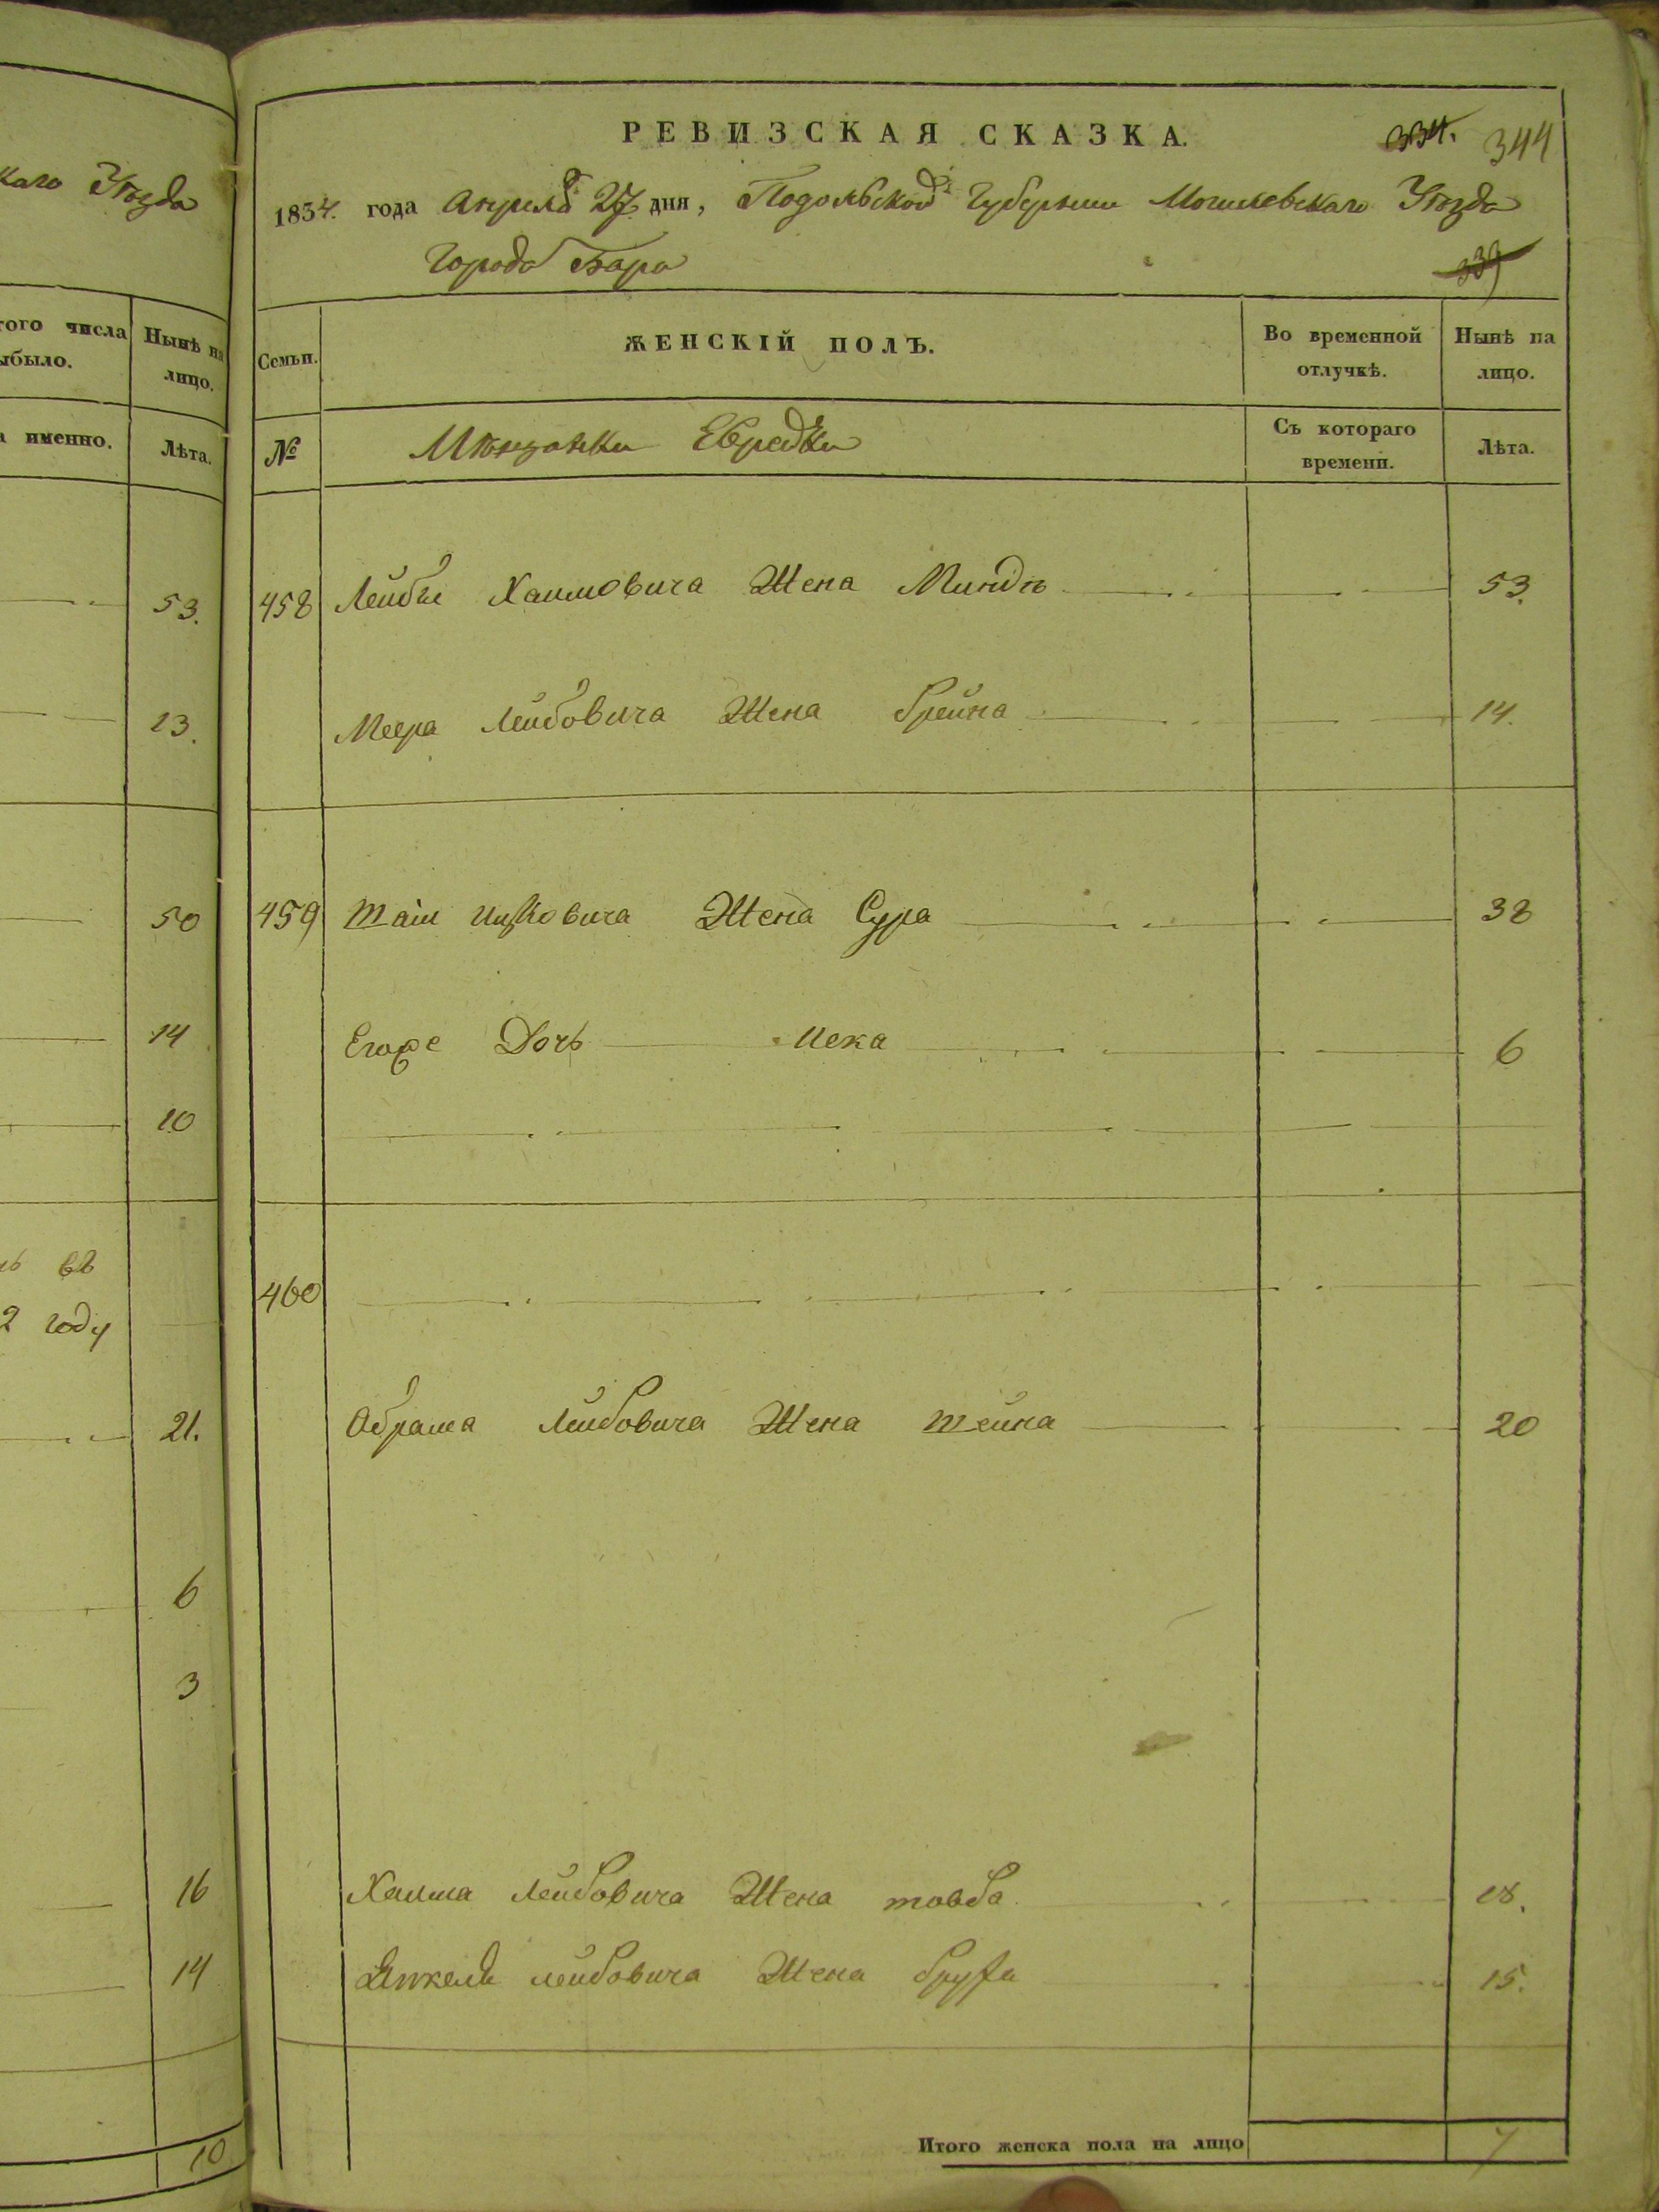 каго Уѣзда
того числа
выбыло.
Нынѣ на
лицо.
а именно.
Лѣта.
53.
13.
50
14
10
въ
2 году
21.
6
3
16
14
10
РЕВИЗСКАЯ СКАЗКА.
334. 344
1834. года Апреля 27 дня, Подольской Губернии Могилевскаго Уѣзда
Города Бара
339
Семьи.
ЖЕНСКІЙ ПОЛЪ.
Во временной
отлучкѣ.
Нынѣ на
лицо.
№
Мѣщанки Еврейки
Съ котораго
времени.
Лѣта.
458 Лейбы Хаимовича Жена Миндя 53.
Меера Лейбовича Жена Брейна 14.
459 Шаи Ицковича Жена Сура 38
Егоже Дочь 6
460
Абрама Лейбовича Жена Шейна 20
Хаима Лейбовича Жена товба 18.
Янкеля лейбовича Жена 15.
Итого женска пола на лицо 7